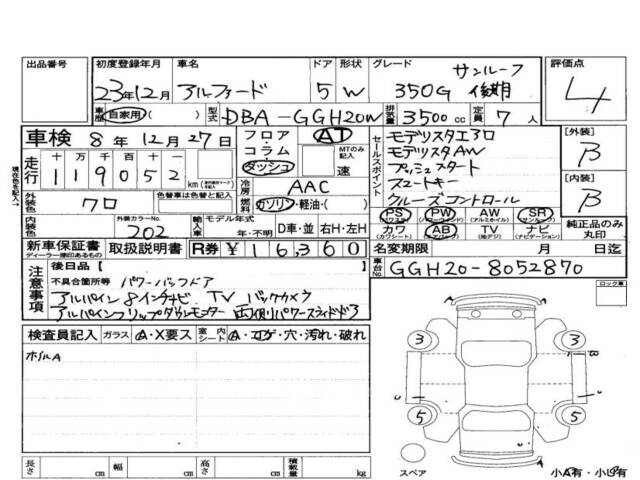 出品番号
初度登録年月 23年12月
車名 アルファード
ドア 5
形状 W
グレード サンルーフ
350G 後期
評価点 4
車歴 自家用 ( )
型式 DBA-GGH20W
排気量 3500 cc
定員 7人
車検 8年12月27日
フロア
コラム
ダッシュ
AT
MTのみ記入
速
セールスポイント
モデリスタエアロ
モデリスタAW
プッシュスタート
スマートキー
クルーズコントロール
[外装] B
[内装] B
走行 十万千百十一
119052
km
冷房 AAC
外装色 クロ
色替車は色替と記入
燃料 ガソリン・軽油・( )
PS (パワステ) PW (パワーウィンドウ) AW (アルミホイル) SR (サンルーフ)
カワ (カワシート) AB (エアバッグ) TV (地デジ) ナビ (ナビゲーション)
純正品のみ丸印
内装色
外装カラーNo. 202
輸入車
モデル年式
年・不明
D車・並
右H・左H
新車保証書
ディーラー捺印あるもの
取扱説明書
R券 ¥16,360
名変期限 月 日迄
車台No. GGH20-8052870
注意事項
後日品 [
不具合箇所等 パワーバックドア
アルパイン8インチナビ TV バックカメラ
アルパインフリップダウンモニター 両側パワースライドドア
ロック車
検査員記入 ガラス A・X要ス
室内シート A・コゲ・穴・汚れ・破れ
ホイルA
3
3
B
5
5
スペア
小A有・小U有
長さ cm
幅 cm
高さ cm
積載量 kg